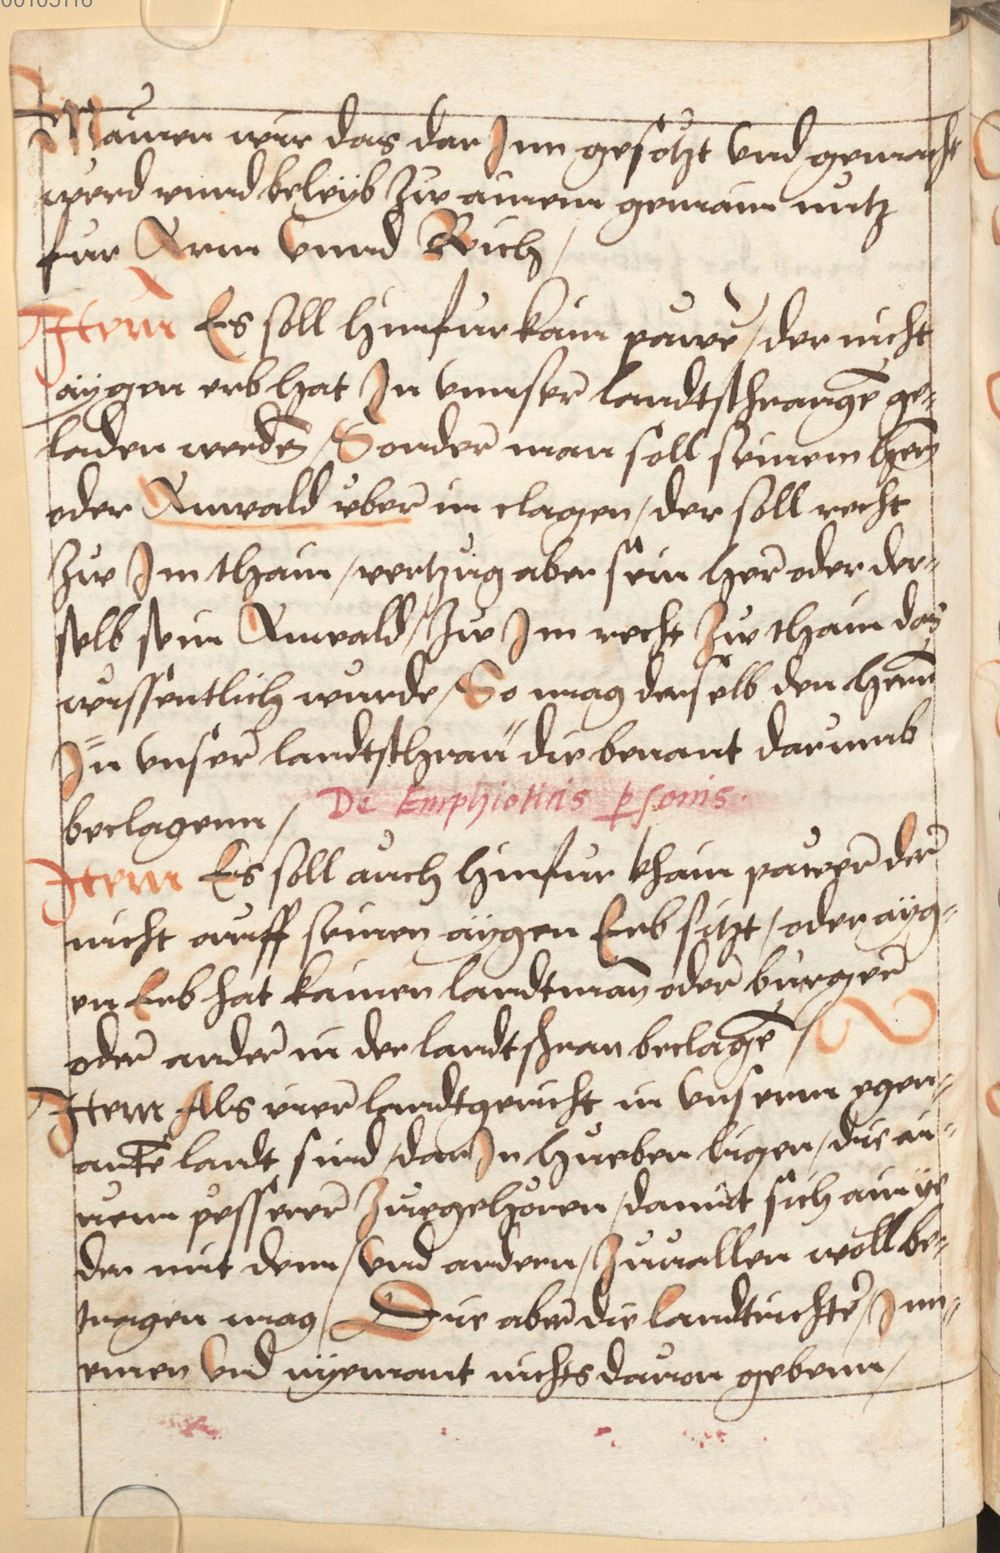 Mainen wir das dar Inn gesötzt vnd gemacht
werd vnnd beleyb zw ainem gemain nutz
fur Arm vnnd Reich /
Item Es soll hinfur kain pawr / der nicht
aygen erb hat In vnnser landtschrangē ge-
laden werdē / Sonder man soll seinem herñ
oder Anwald vber in clagen / der soll recht
zw Im thain / vertzug aber sein her oder der-
selb sein Anwald / Zw Im recht zw thain das
wissentlich wurde / So mag derselb den herrñ
In vnser landtschrañ die benant darumb
beclagenn /
De Emphioticis psonis.
Item Es soll auch hinfur khain pawer der
nicht auff seinen aygen Erb sitzt / oder ayg-
en Erb hat kainen landtmañ oder burger
oder ander in der landtschran beclagē /
Item Als vier landtgericht in vnserm egen-
antē landt sind / dar In hueben ligen / die ai-
nem pesserer zuegehoren / damit sich ain ye
der mit dem / vnd andern / zuuallen woll be-
tragen mag / Die aber die landtrichter / Inn-
emen vnd nyemant nichts dauon gebenn /